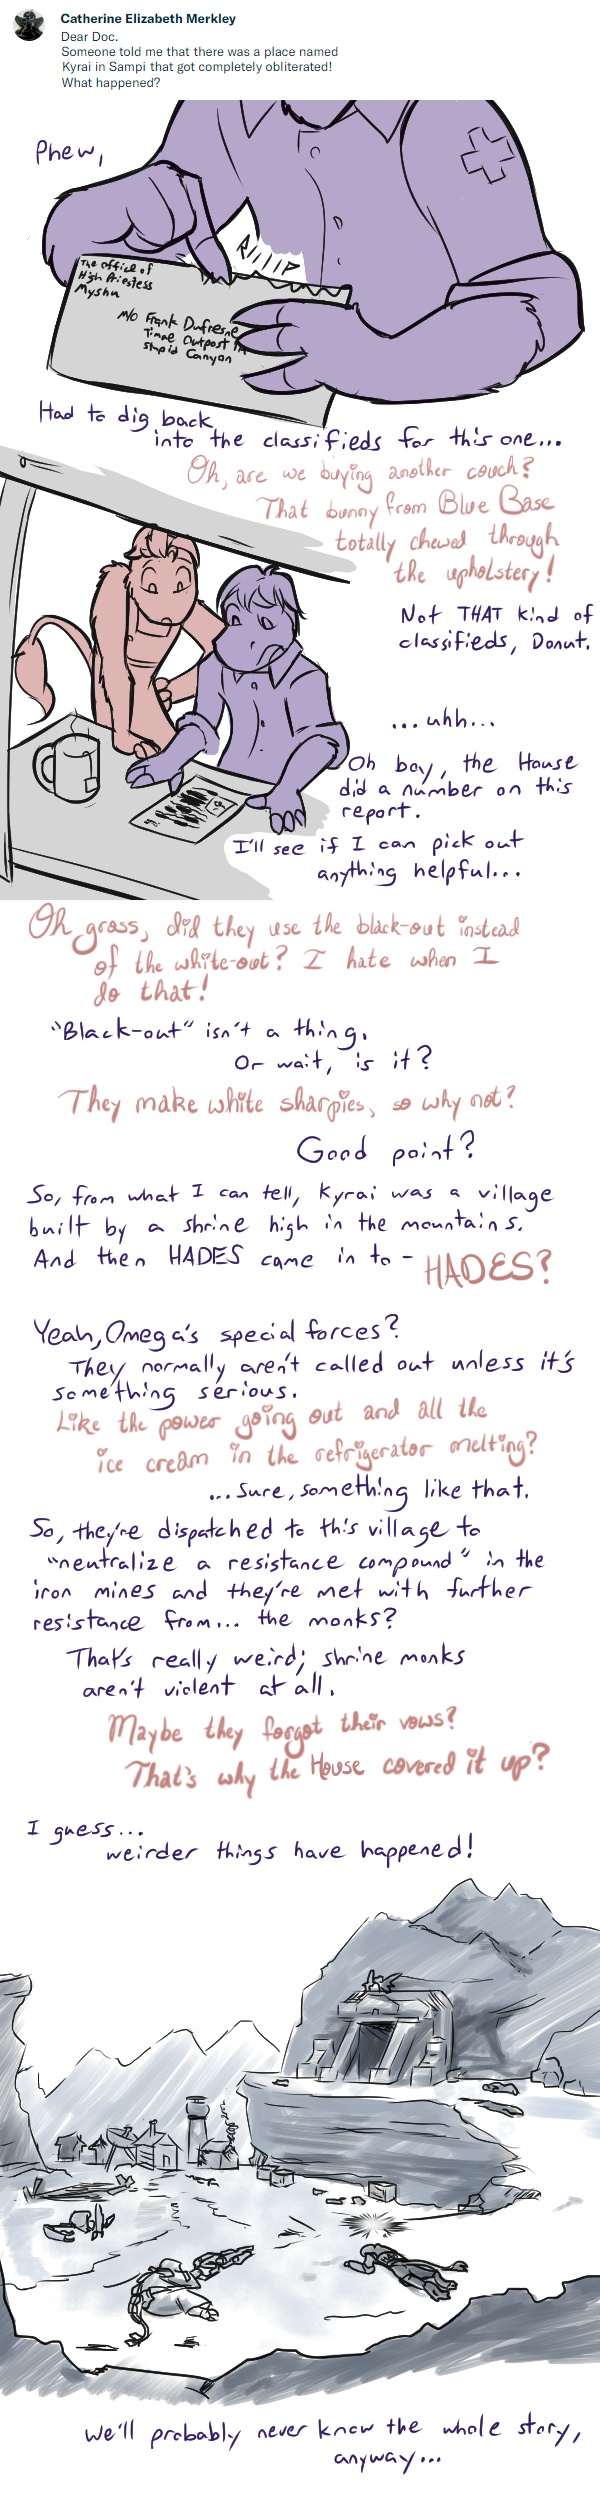 Catherine Elizabeth Merkley
Dear Doc.
Someone told me that there was a place named
Kyrai in Sampi that got completely obliterated!
What happened?
Phew,
RIIIIP
The office of
High Priestess
Myshu
M/O Frank Dufresne
Timae Outpost
Stupid Canyon
Had to dig back
into the classifieds for this one...
Oh, are we buying another couch?
That bunny from Blue Base
totally chewed through
the upholstery!
Not THAT kind of
classifieds, Donut.
...uhh...
Oh boy, the House
did a number on this
report.
I'll see if I can pick out
anything helpful...
Oh gross, did they use the black-out instead
of the white-out? I hate when I
do that!
"Black-out" isn't a thing.
Or wait, is it?
They make white sharpies, so why not?
Good point?
So, from what I can tell, Kyrai was a village
built by a shrine high in the mountains.
And then HADES came in to - HADES?
Yeah, Omega's special forces?
They normally aren't called out unless it's
something serious.
Like the power going out and all the
ice cream in the refrigerator melting?
...Sure, something like that.
So, they're dispatched to this village to
"neutralize a resistance compound" in the
iron mines and they're met with further
resistance from... the monks?
That's really weird; shrine monks
aren't violent at all.
Maybe they forgot their vows?
That's why the House covered it up?
I guess...
weirder things have happened!
We'll probably never know the whole story,
anyway...